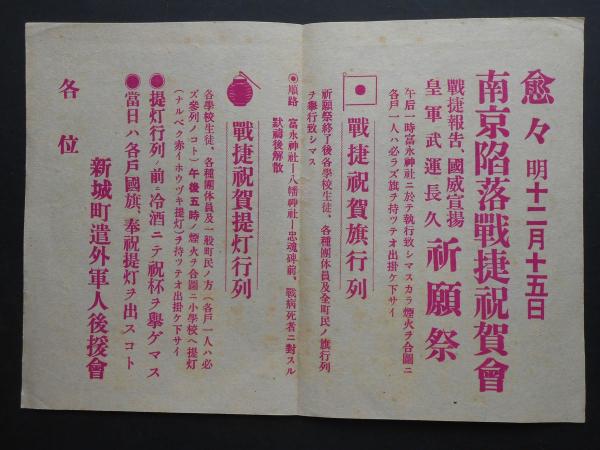 愈々 明十二月十五日
南京陷落戰捷祝賀會
戰捷報告、國威宣揚
皇軍武運長久 祈願祭
午后一時富永神社ニ於テ執行致シマスカラ煙火ヲ合圖ニ
各戸一人ハ必ラズ旗ヲ持ツテオ出掛ケ下サイ
戰捷祝賀旗行列
祈願祭終了後各學校生徒、各種團体員及全町民ノ旗行列
ヲ擧行致シマス
◉順路 富永神社―八幡神社―忠魂碑前、戰病死者ニ對スル
默禱後解散
戰捷祝賀提灯行列
各學校生徒、各種團体員及一般町民ノ方(各戸一人ハ必
ズ參列ノコト)午後五時ノ煙火ヲ合圖ニ小學校ヘ提灯
(ナルベク赤イホウヅキ提灯)ヲ持ツテオ出掛ケ下サイ
◉提灯行列ノ前ニ冷酒ニテ祝杯ヲ擧ゲマス
◉當日ハ各戸國旗、奉祝提灯ヲ出スコト
新城町遣外軍人後援會
各位